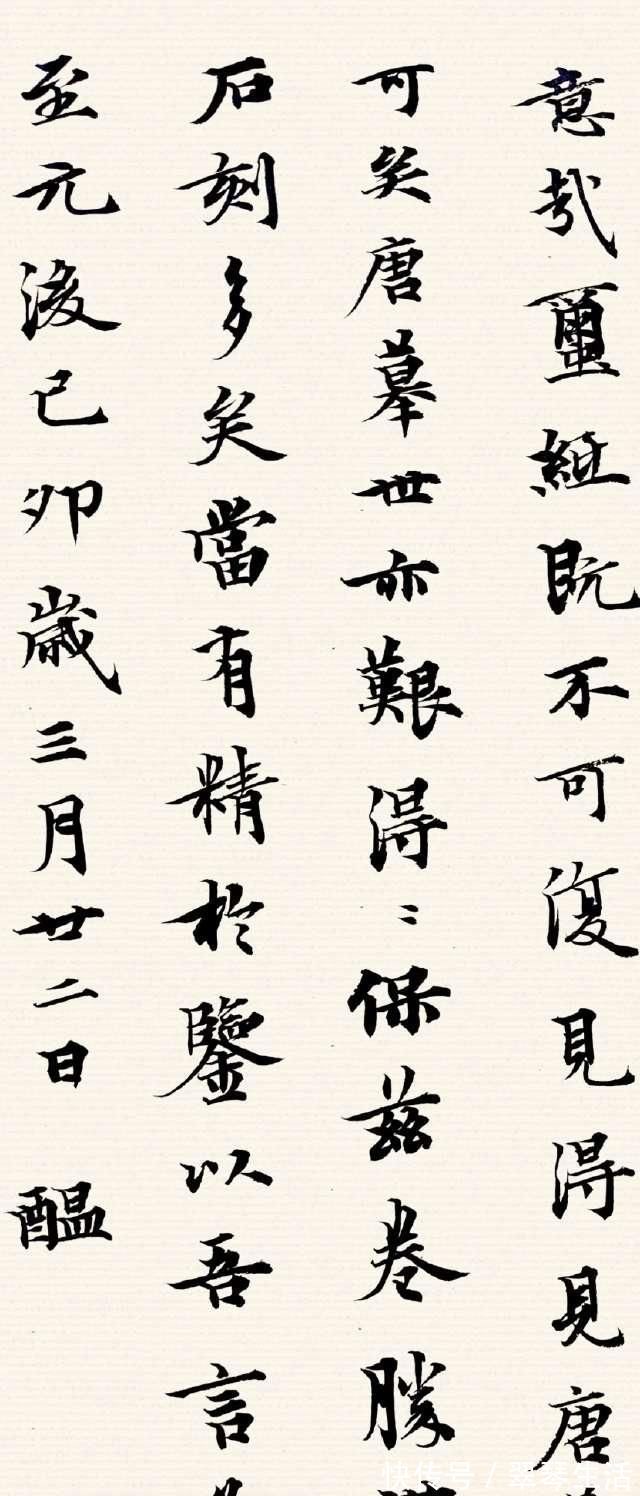 意哉蠒紙既不可復見得見唐
可矣唐摹世亦艱得〻保茲卷勝
石刻多矣當有精於鑒以吾言
至元後己卯歲三月廿二日 醖
快传号/翠琴生活